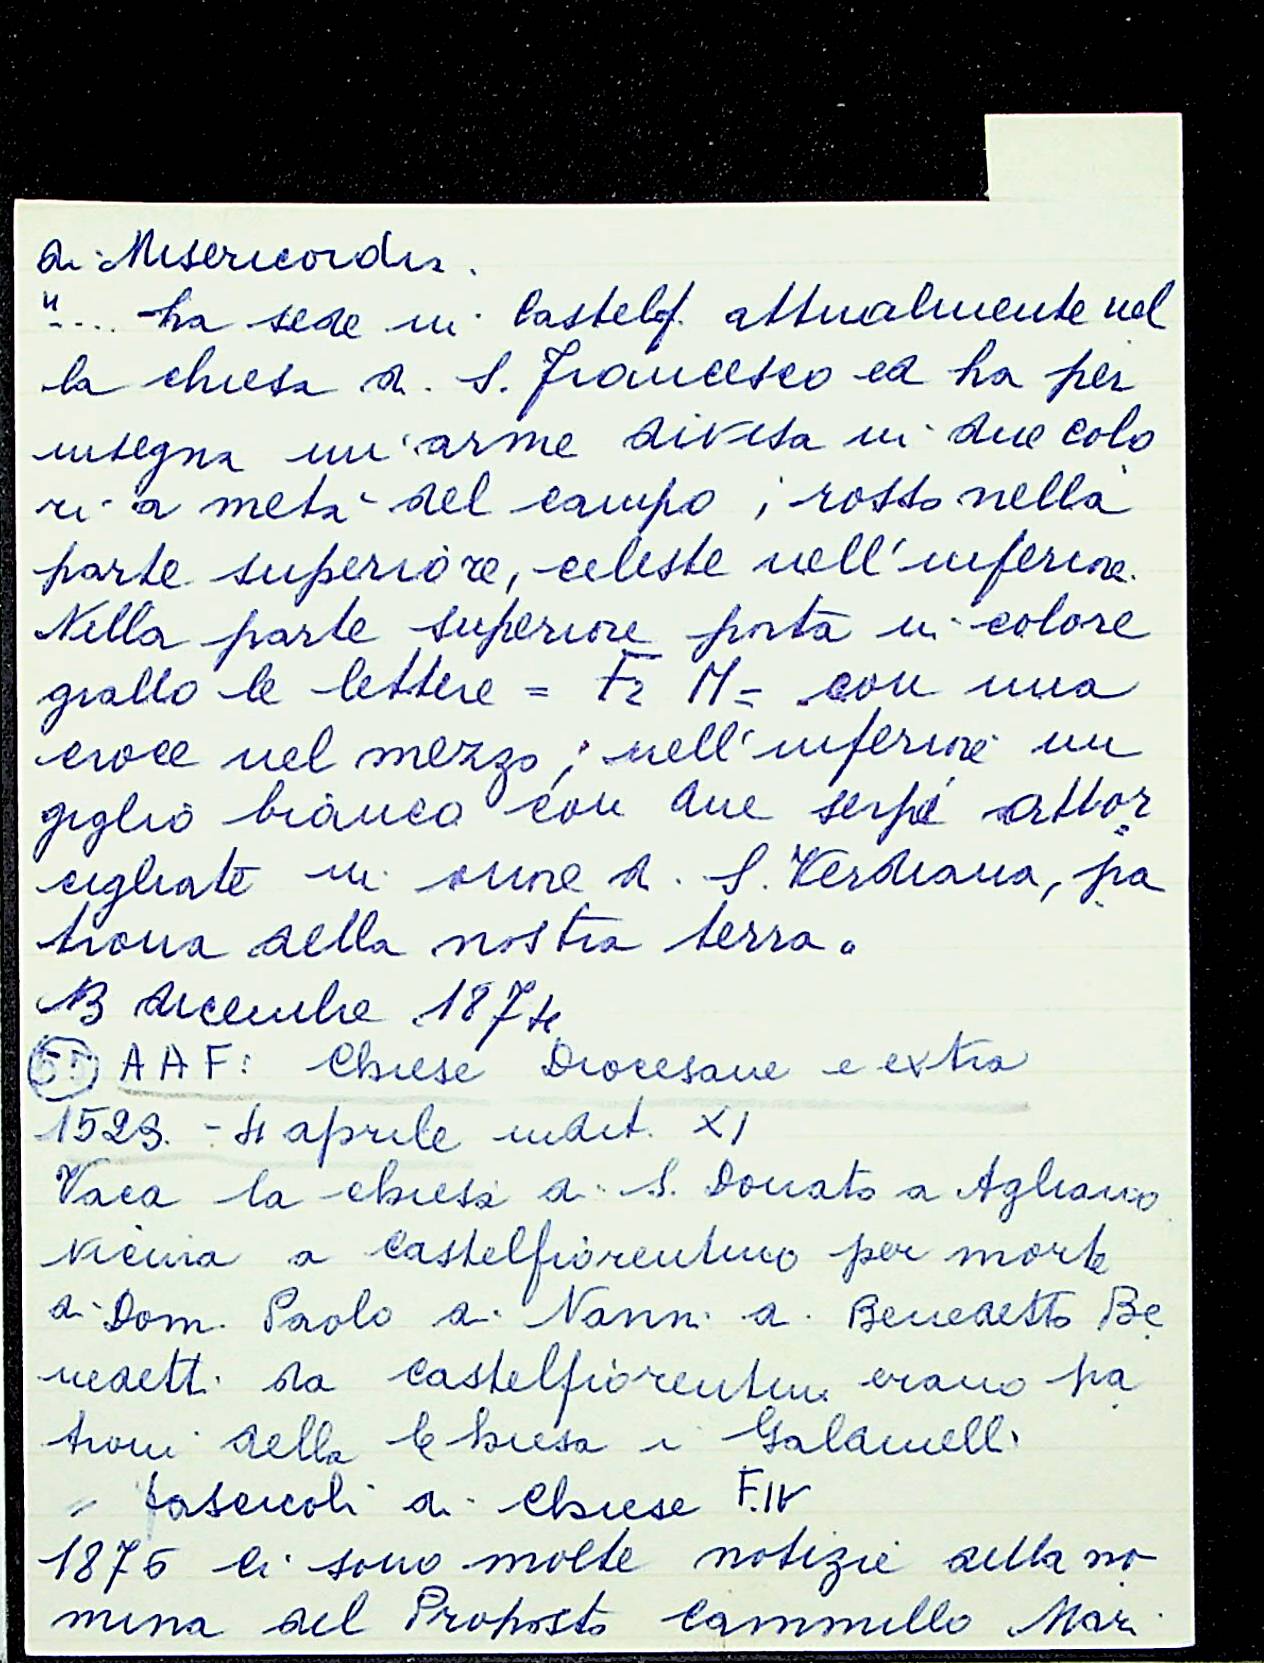 di Misericordia.
".... ha sede in Castelf. attualmente nel
la chiesa di S. Francesco ed ha per
insegna un'arme divisa in due colo
ri a metà del campo; rosso nella
parte superiore, celeste nell'inferiore.
Nella parte superiore porta in colore
giallo le lettere = Fr M = con una
croce nel mezzo; nell'inferiore un
giglio bianco con due serpi attor
cigliate in onore di S. Verdiana, pa
trona della nostra terra.
13 dicembre 1874
55 AAF: Chiese Diocesane e extra
1523. - 4 aprile indit. XI
Vaca la chiesa di S. Donato a Agliano
vicina a Castelfiorentino per morte
di Dom. Paolo di Nanni di Benedetto Be
nedetti da Castelfiorentino erano pa
troni della Chiesa i Galdinelli
= fascicoli di Chiese F. IV
1876 Ci sono molte notizie della no
mina del Proposto Cammillo Mari